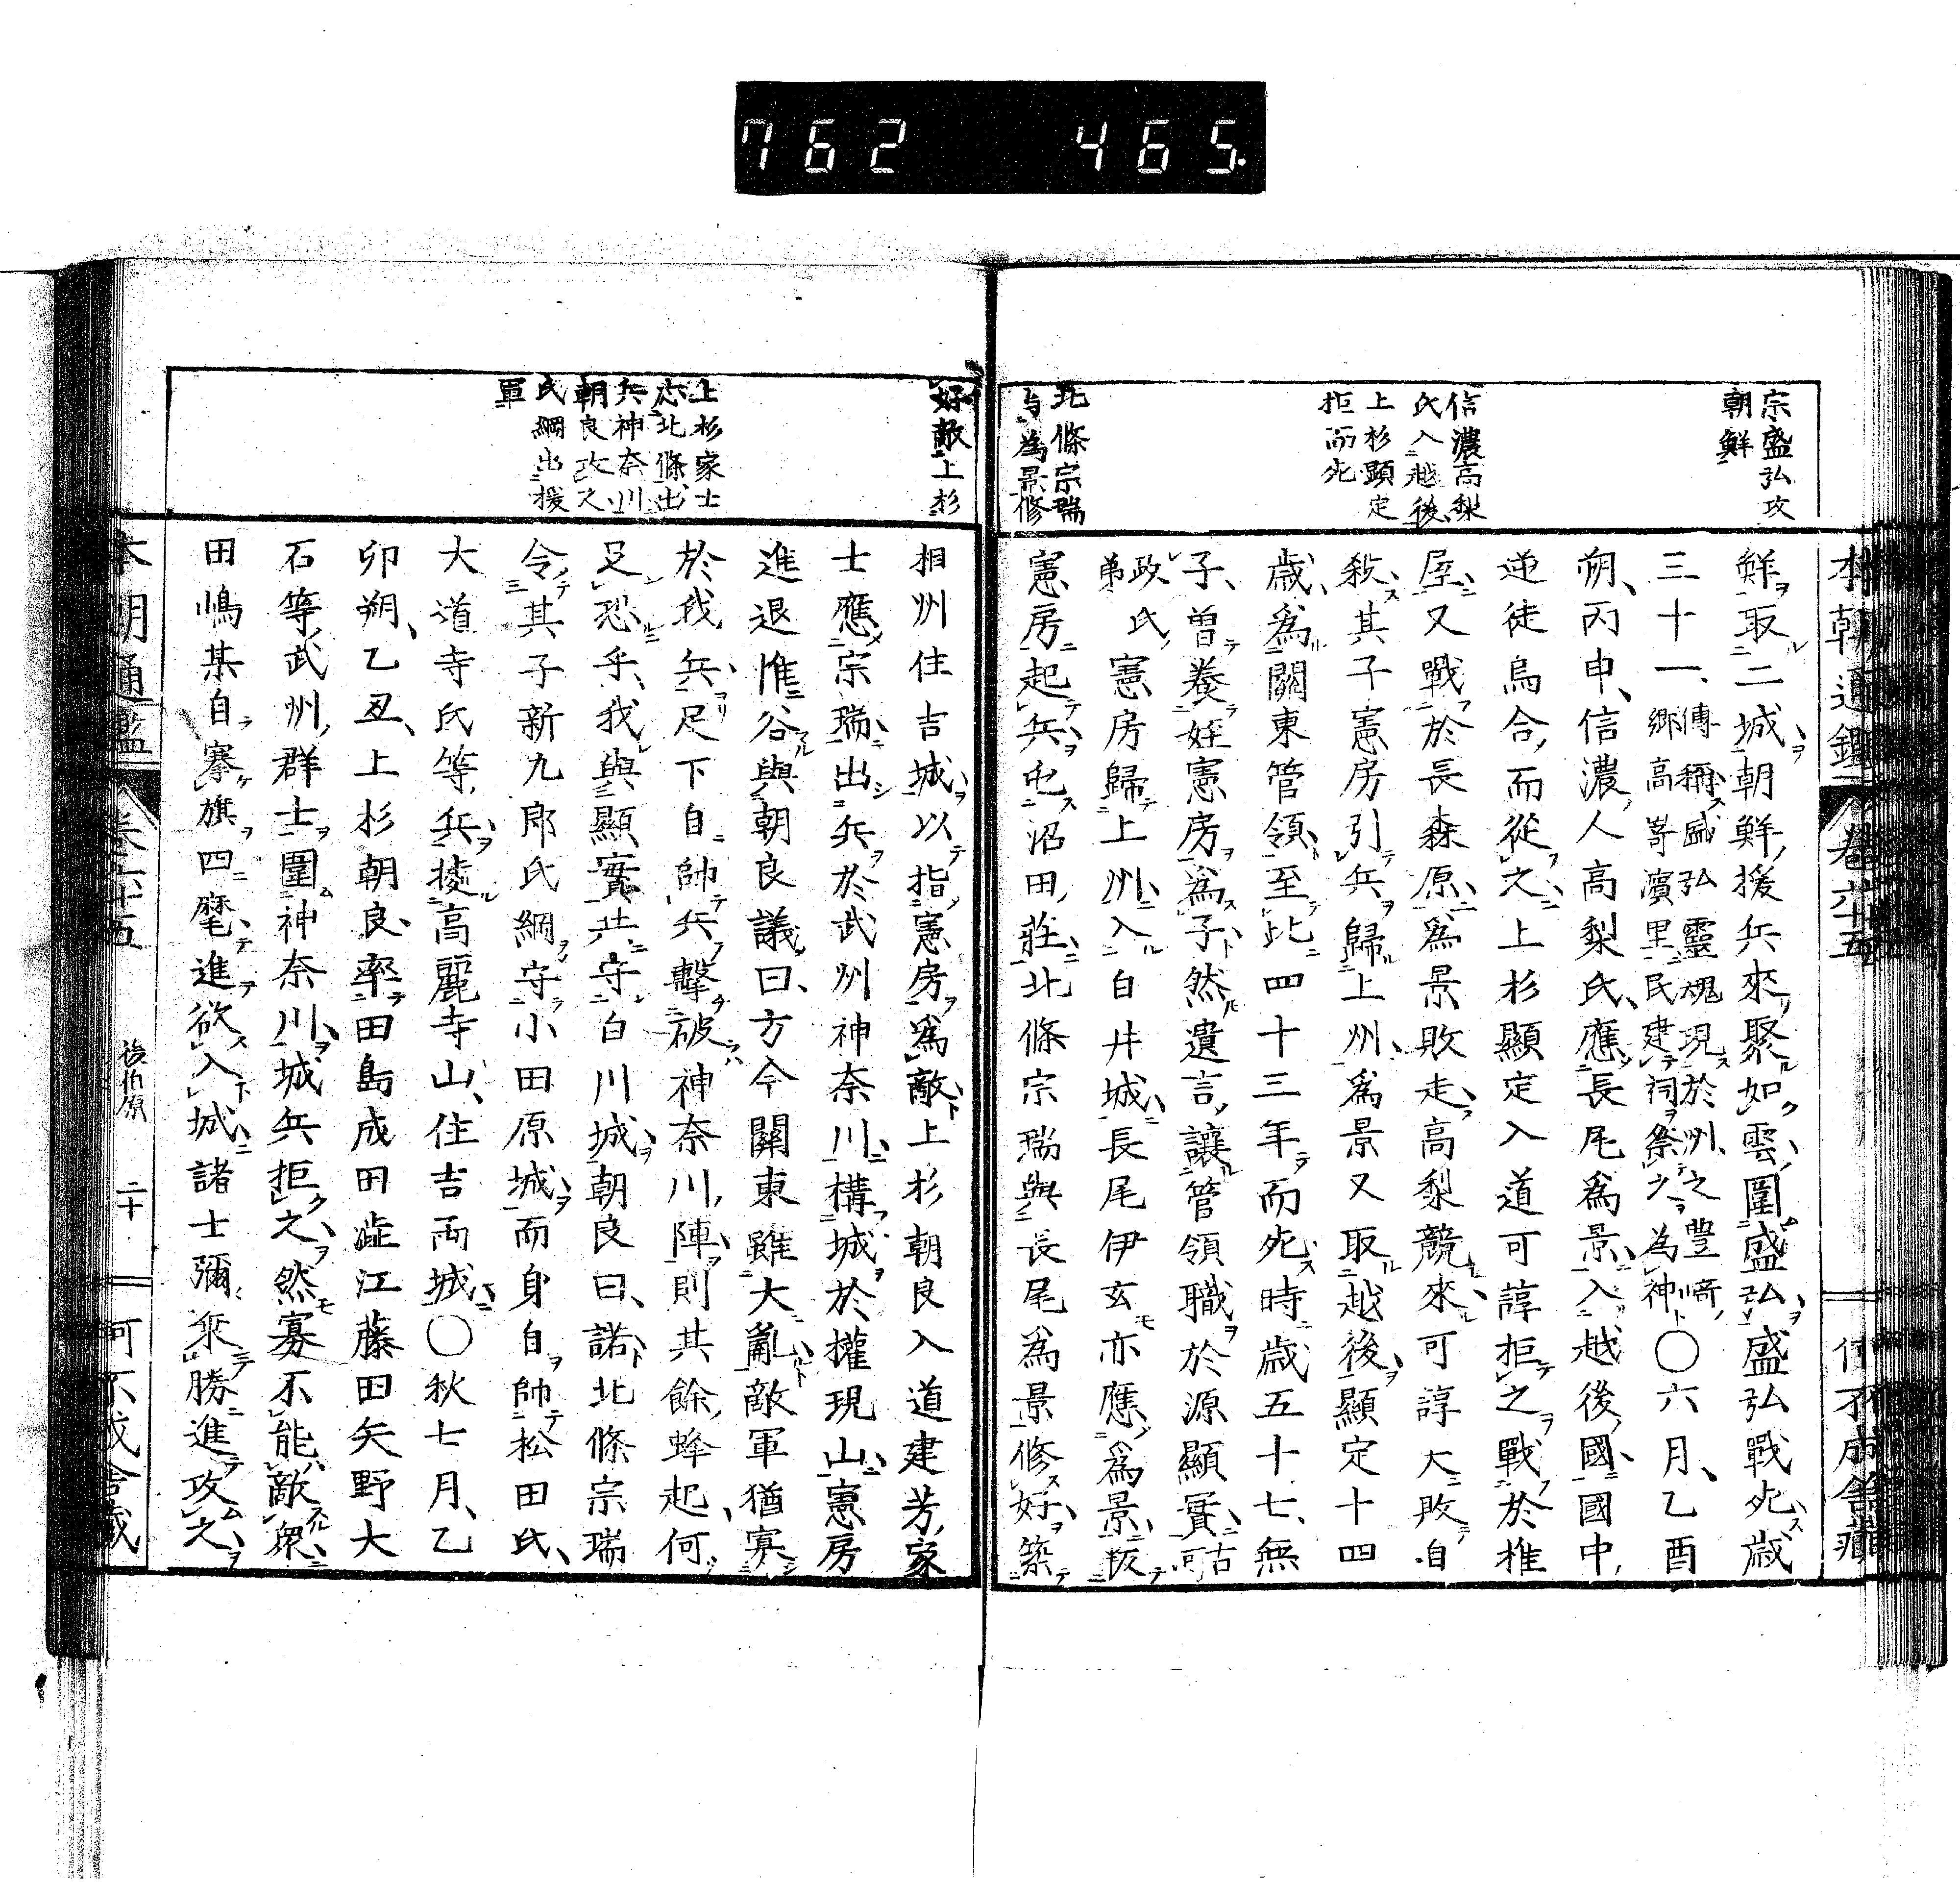 762 465.
宗盛弘攻
朝鮮
信濃高梨
氏入越後
上杉顯定
拒而死
北條宗瑞
与為景修
本朝通鑑 卷六十五
鮮取二城朝鮮援兵來聚如雲圍盛弘盛弘戰死歲
三十一傳稱盛弘靈魂現於州之豐﨑
郷高嵜濱里民建祠祭之為神○六月乙酉
朔丙申信濃人高梨氏應長尾爲景入越後國國中
逆徒烏合而從之上杉顯定入道可諄拒之戰於椎
屋又戰於長森原爲景敗走高梨競來可諄大敗自
殺其子憲房引兵歸上州爲景又取越後顯定十四
歳爲關東管領至此四十三年而死時歳五十七無
子曽養姪憲房爲子然遺言讓管領職於源顯實古河
政氏
弟憲房歸上州入白井城長尾伊玄亦應爲景叛
憲房起兵屯沼田莊北條宗瑞與長尾爲景修好築
好敵上杉
上杉家士
忿北條出
兵神奈川
朝良攻之
氏綱出援
軍
相州住吉城以指憲房爲敵上杉朝良入道建芳家
士應宗瑞出兵於武州神奈川構城於權現山憲房
進退惟谷與朝良議曰方今關東雖大亂敵軍猶寡
於我兵足下自帥兵擊破神奈川陣則其餘蜂起何
足恐乎我與顯實共守白川城朝良曰諾北條宗瑞
令其子新九郎氏綱守小田原城而身自帥松田氏
大道寺氏等兵據高麗寺山住吉兩城○秋七月乙
卯朔乙丑上杉朝良率田島成田澁江藤田矢野大
石等武州群士圍神奈川城城兵拒之然寡不能敵衆
田嶋某自搴旗四麾進欲入城諸士彌乘勝進攻之
本朝通鑑 卷六十五 後柏原 二十 何不成舎藏